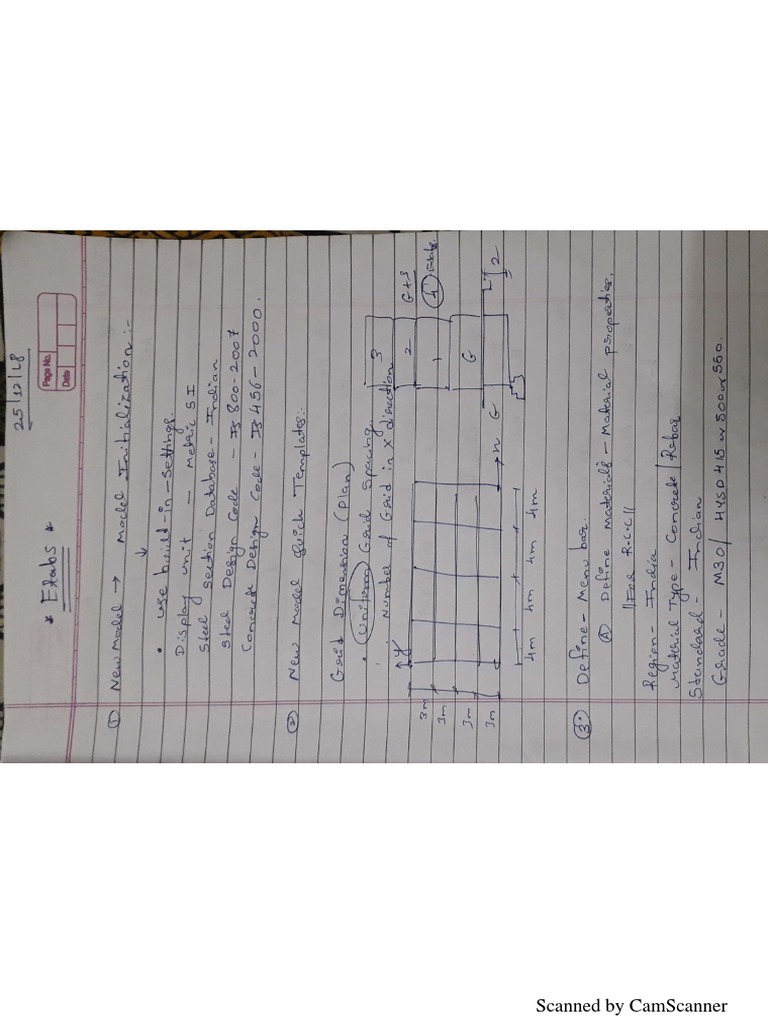 25/12/18
Page No.
Date
* Etabs *
① New Model → Model Initialization :-
↓
• Use build-in-settings.
Display unit - Metric SI
Steel Section Database - Indian
Steel Design Code - IS 800-2007
Concrete Design Code - IS 456-2000.
② New Model Quick Templates :-
Grid Dimension (Plan)
• Uniform Grid Spacing
Number of Grid in X direction
Y
3m
3m
3m
3m
4m 4m 4m 4m
G+3
4 Etabs
3
2
1
G
G
2
③ Define - Menu bar.
Ⓐ Define Materials - Material properties.
"For R.C.C"
Region - India
Material Type - Concrete / Rebar
Standard - Indian
Grade - M30 / HYSD 415 or 500 or 550.
Scanned by CamScanner